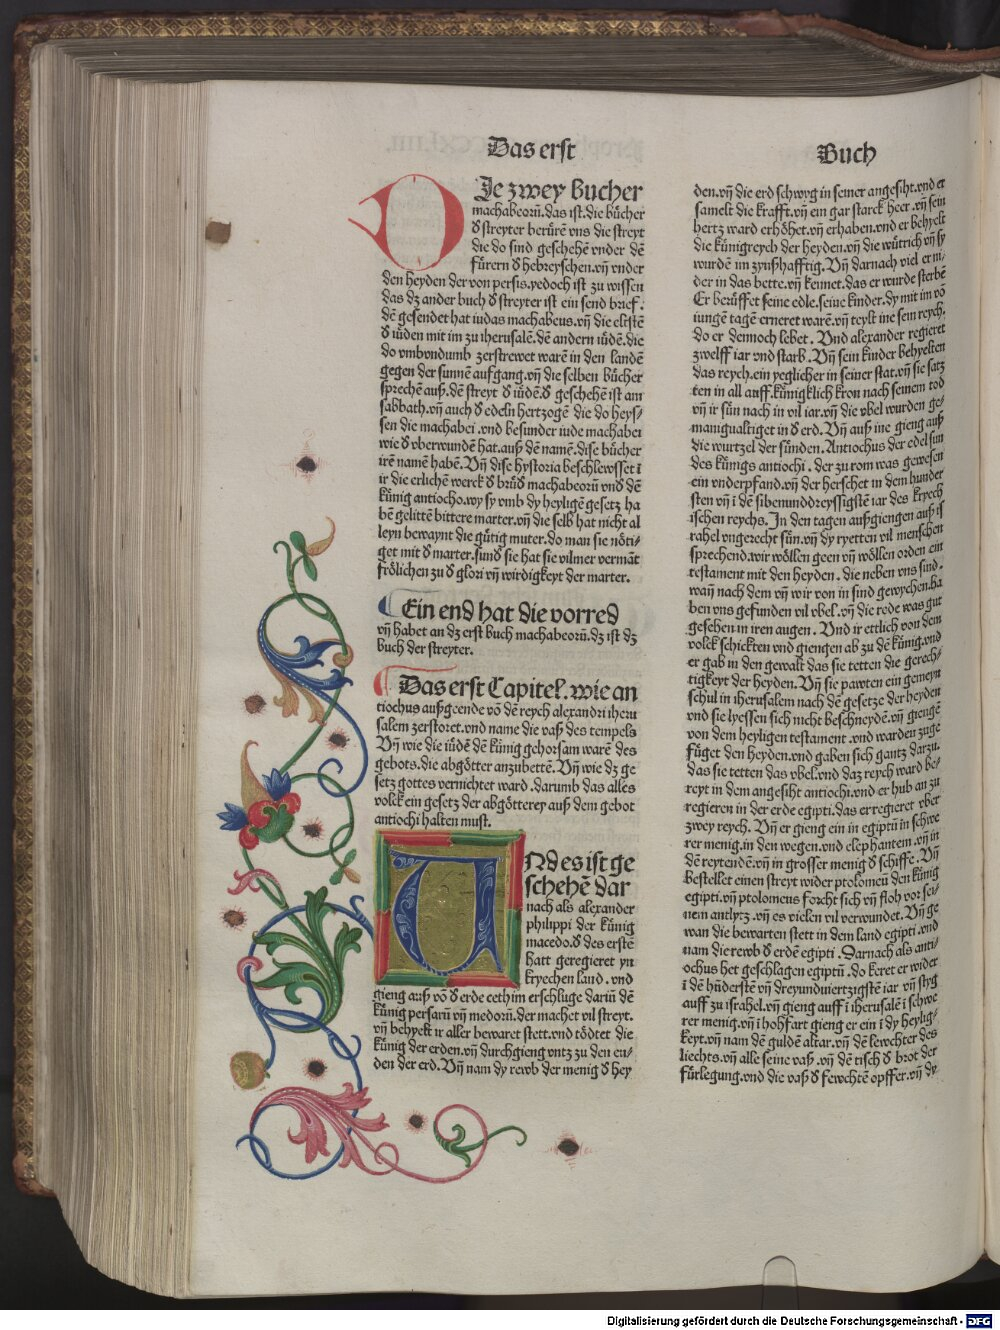 Das erst
Buch
DIe zwey bucher
machabeoru̅.das ist.die bücher
d̕ streyter berüre̅ vns die streyt
die do sind geschehe̅ vnder de̅
fürern d̕ hebreyschen.vn̅ vnder
den heyden der von persis.yedoch ist zu wissen
das dz ander buch d̕ streyter ist ein send brief.
de̅ gesendet hat iudas machabeus.vn̅ die eltste̅
d̕ iüden mit im zu iherusale̅.de̅ andern iüde̅.die
do vmbvndumb zerstrewet ware̅ in den lande̅
gegen der sunne̅ aufgang.vn̅ die selben bücher
spreche̅ auß.de̅ streyt d̕ iüde̅.d̕ geschehe̅ ist am
sabbath.vn̅ auch d̕ edeln hertzoge̅ die do heys⸗
sen die machabei .vnd besunder iude machabei
wie d̕ vberwunde̅ hat.auß de̅ name̅.dise bücher
ire̅ name̅ habe̅.Vn̅ dise hystoria beschlewsset i̅
ir die erliche̅ werck d̕ brüd̕ machabeoru̅ vnd̕ de̅
künig antiocho.wy sy vmb dy heylige̅ gesetz ha
be̅ gelitte̅ bittere marter.vn̅ die selb hat nicht al
leyn beweynt die gütig muter.do man sie nöti⸗
get mit d̕ marter.sund̕ sie hat sie vilmer verma̅t
frölichen zu d̕ glori vn̅ wirdigkeyt der marter.
Ein end hat die vorred
vn̅ habet an dz erst buch machabeoru̅.dz ist dz
buch der streyter.
Das erst Capitel.wie an
tiochus außgeende vo̅ de̅ reych alexandri iheru
salem zerstoret.vnd name die vaß des tempels
Vn̅ wie die iüde̅ de̅ künig gehorsam ware̅ des
gebots.die abgötter anzubette̅.Vn̅ wie dz ge
setz gottes vernichtet ward .darumb das alles
volck ein gesetz der abgötterey auß dem gebot
antiochi halten must.
VNd es ist ge
schehe̅ dar
nach als alexander
philippi der künig
macedo.d̕ des erste̅
hatt geregieret yn
kryechen land .vnd
gieng auß vo̅ d̕ erde cethim erschluge dariu̅ de̅
künig persaru̅ vn̅ medoru̅.der machet vil streyt.
vn̅ behyelt ir aller bewaret stett.vnd tödtet die
künig der erden.vn̅ durchgieng vntz zu den en⸗
den der erd.Vn̅ nam dy rewb der menig d̕ hey
den.vn̅ die erd schwyg in seiner angesiht.vnd er
samelt die krafft.vn̅ ein gar starck heer .vn̅ sein
hertz ward erhöhet.vn̅ erhaben.vnd er behyelt
die künigreych der heyden.vn̅ die wütrich vn̅ sy
wurde̅ im zynßhafftig. Vn̅ darnach viel er ni⸗
der in das bette.vn̅ kennet.das er wurde sterbe̅
Er berüffet seine edle.seine kinder.dy mit im vo̅
iunge̅ tage̅ erneret ware̅.vn̅ teylt ine sein reych.
do er dennoch lebet . Vnd alexander regieret
zwelff iar vnd starb. Vn̅ sein kinder behyelten
das reych.ein yeglicher in seiner stat.vn̅ sie satz
ten in all auff.künigklich kron nach seinem tod
vn̅ ir sün nach in vil iar.vn̅ die vbel wurden ge⸗
manigualtiget in d̕ erd. Vn̅ auß ine gieng auß
die wurtzel der sünden. Antiochus der edel sun
des künigs antiochi . der zu rom was gewesen
ein vnderpfand.vn̅ der herschet in dem hunder
sten vn̅ i̅ de̅ sibenunddreyssigste̅ iar des kryech
ischen reychs. In den tagen außgiengen auß is
rahel vngerecht sün.vn̅ dy ryetten vil menschen
sprechend.wir wöllen geen vn̅ wöllen orden ein
testament mit den heyden. die neben vns sind.
wan̅ nach dem vn̅ wir von in sind gewychen.ha
ben vns gefunden vil vbel.vn̅ die rede was gut
gesehen in iren augen. Vnd ir ettlich von dem
volck schickten vnd giengen ab zu de̅ künig.vnd
er gab in den gewalt das sie tetten die gerech⸗
tigkeyt der heyden. Vn̅ sie pawten ein gemeyn
schul in iherusalem nach de̅ gesetze der heyden
vnd sie lyessen sich nicht beschneyde̅.vn̅ gienge̅
von dem heyligen testament .vnd warden zuge
füget den heyden.vnd gaben sich gantz darzu.
das sie tetten das vbel.vnd daz reych ward be⸗
reyt in dem angesiht antiochi.vnd er hub an zu
regieren in der erde egipti.das er regieret vber
zwey reych. Vn̅ er gieng ein in egiptu̅ in schwe
rer menig.in den wegen.vnd elephantem .vn̅ in
de̅ reytende̅.vn̅ in grosser menig d̕ schiffe. Vn̅
bestellet einen streyt wider ptolomeu̅ den künig
egipti.vn̅ ptolomeus forcht sich vn̅ floh vor sei⸗
nem antlytz .vn̅ es vielen vil verwundet. Vn̅ ge
wan die bewarten stett in dem land egipti .vnd
nam die rewb d̕ erde̅ egipti . Darnach als anti⸗
ochus het geschlagen egiptu̅ .do keret er wider
i̅ de̅ hunderste̅ vn̅ dreyundviertzigste̅ iar vn̅ styg
auff zu israhel.vn̅ gieng auff i̅ iherusale̅ i̅ schwe
rer menig.vn̅ i̅ hohfart gieng er ein i̅ dy heylig⸗
keyt.vn̅ nam de̅ gulde̅ altar.vn̅ de̅ lewchter des
liechts.vn̅ alle seine vaß .vn̅ de̅ tisch d̕ brot der
fürlegung.vnd die vaß d̕ fewchte̅ opffer.vn̅ dy
Digitalisierung gefördert durch die Deutsche Forschungsgemeinschaft - DFG